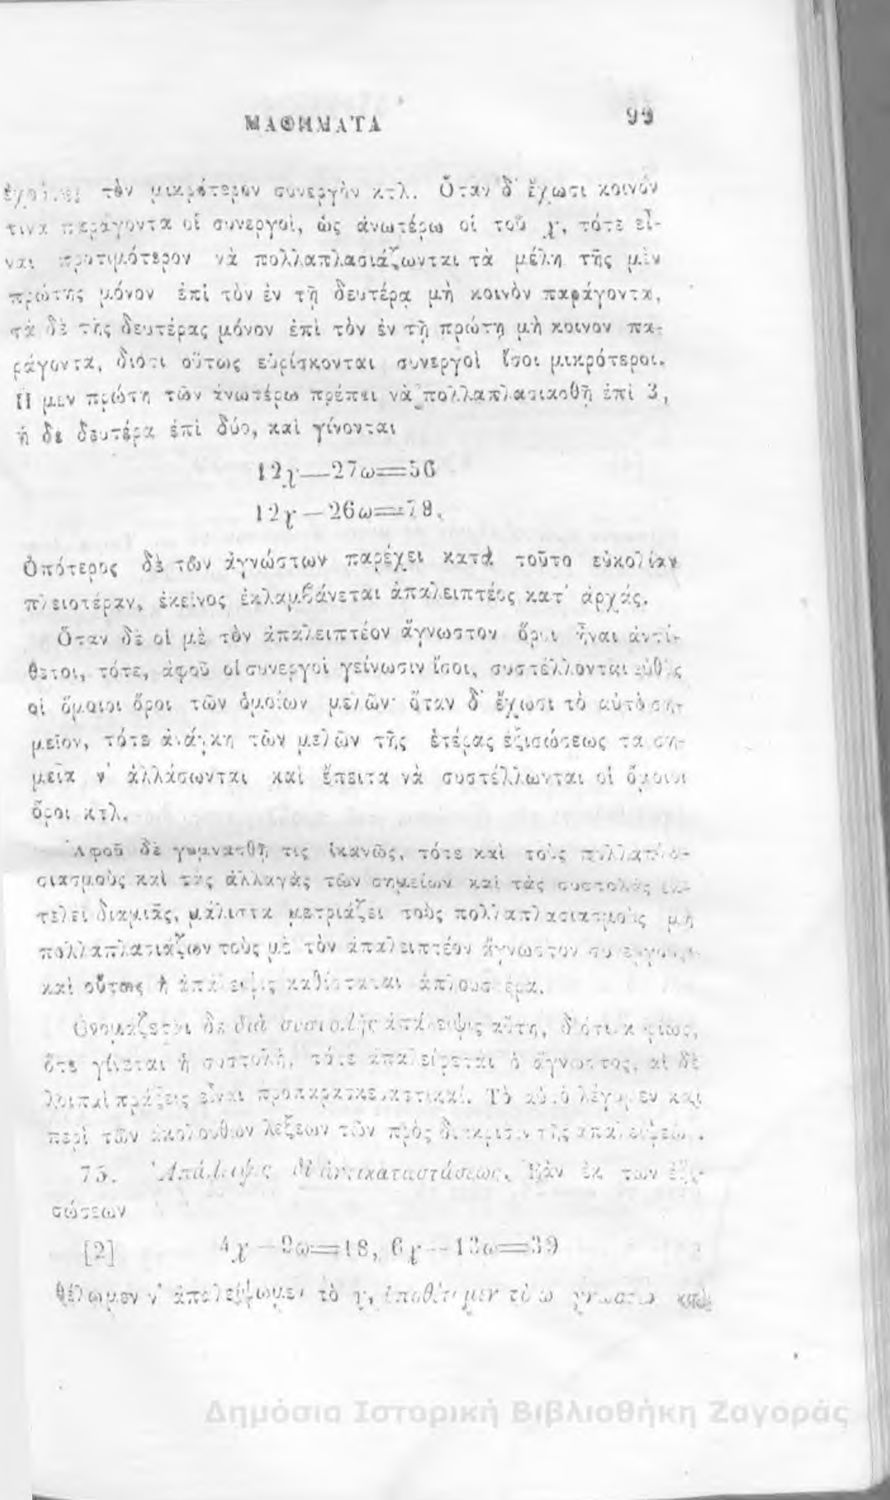 ΜΑΘΗΜΑΤΑ 99
τὸν μικρότερον συνεργὸν κτλ. Ὅταν δ' ἔχωσι κοινόν
τινα παράγοντα οἱ συνεργοὶ, ὡς ἀνωτέρω οἱ τοῦ χ, τότε εἶ-
ναι προτιμότερον νὰ πολλαπλασιάζωνται τὰ μέλη τῆς μὲν
πρώτης μόνον ἐπὶ τὸν ἐν τῇ δευτέρᾳ μὴ κοινὸν παράγοντα,
τὰ δὲ τῆς δευτέρας μόνον ἐπὶ τὸν ἐν τῇ πρώτῃ μὴ κοινον πα-
ράγοντα, διότι οὕτως εὑρίσκονται συνεργοὶ ἴσοι μικρότεροι.
Ἡ μεν πρώτη τῶν ἀνωτέρω πρέπει νὰ πολλαπλασιασθῇ ἐπὶ 3,
ἡ δὲ δευτέρα ἐπὶ δύο, καὶ γίνονται
12χ—27ω=56
12χ—26ω=78.
Ὁπότερος δὲ τῶν ἀγνώστων παρέχει κατὰ τοῦτο εὐκολίαν
πλειοτέραν, ἐκεῖνος ἐκλαμβάνεται ἀπαλειπτέος κατ' ἀρχάς.
Ὅταν δὲ οἱ μὲ τὸν ἀπαλειπτέον ἄγνωστον ὅροι ἦναι ἀντί-
θετοι, τότε, ἀφοῦ οἱ συνεργοὶ γείνωσιν ἴσοι, συστέλλονται εὐθὺς
οἱ ὅμοιοι ὅροι τῶν ὁμοίων μελῶν· ὅταν δ' ἔχωσι τὸ αὐτὸ ση-
μεῖον, τότε ἀνάγκη τῶν μελῶν τῆς ἑτέρας ἐξισώσεως τα ση-
μεῖα ν' ἀλλάσσωνται καὶ ἔπειτα νὰ συστέλλωνται οἱ ὅμοιοι
ὅροι κτλ.
Ἀφοῦ δὲ γυμνασθῇ τις ἱκανῶς, τότε καὶ τοὺς πολλαπλα-
σιασμοὺς καὶ τὰς ἀλλαγὰς τῶν σημείων καὶ τὰς συστολὰς ἐκ-
τελεῖ διαμιᾶς, μάλιστα μετριάζει τοὺς πολλαπλασιασμοὺς μὴ
πολλαπλασιάζων τοὺς μὲ τὸν ἀπαλειπτέον ἄγνωστον συνεργοὺς
καὶ οὕτως ἡ ἀπάλειψις καθίσταται ἁπλουστέρα.
Ὀνομάζεται δὲ διὰ συστολῆς ἀπάλειψις αὕτη, διότι κυρίως,
ὅτε γίνεται ἡ συστολὴ, τότε ἀπαλείφεται ὁ ἄγνωστος, αἱ δὲ
λοιπαὶ πράξεις εἶναι προπαρασκευαστικαί. Τὸ αὐτὸ λέγομεν καὶ
περὶ τῶν ἀκολούθων λέξεων τῶν πρὸς διάκρισιν τῆς ἀπαλείψεως.
75. Ἀπάλειψις δι' ἀντικαταστάσεως. Ἐὰν ἐκ των ἐξι-
σώσεων
[2] 4χ—9ω=18, 6χ—13ω=39
θέλωμεν ν' ἀπαλείψωμεν τὸ χ, ὑποθέτομεν τὸ ω γνωστὸν καὶ
Δημόσια Ιστορική Βιβλιοθήκη Ζαγοράς